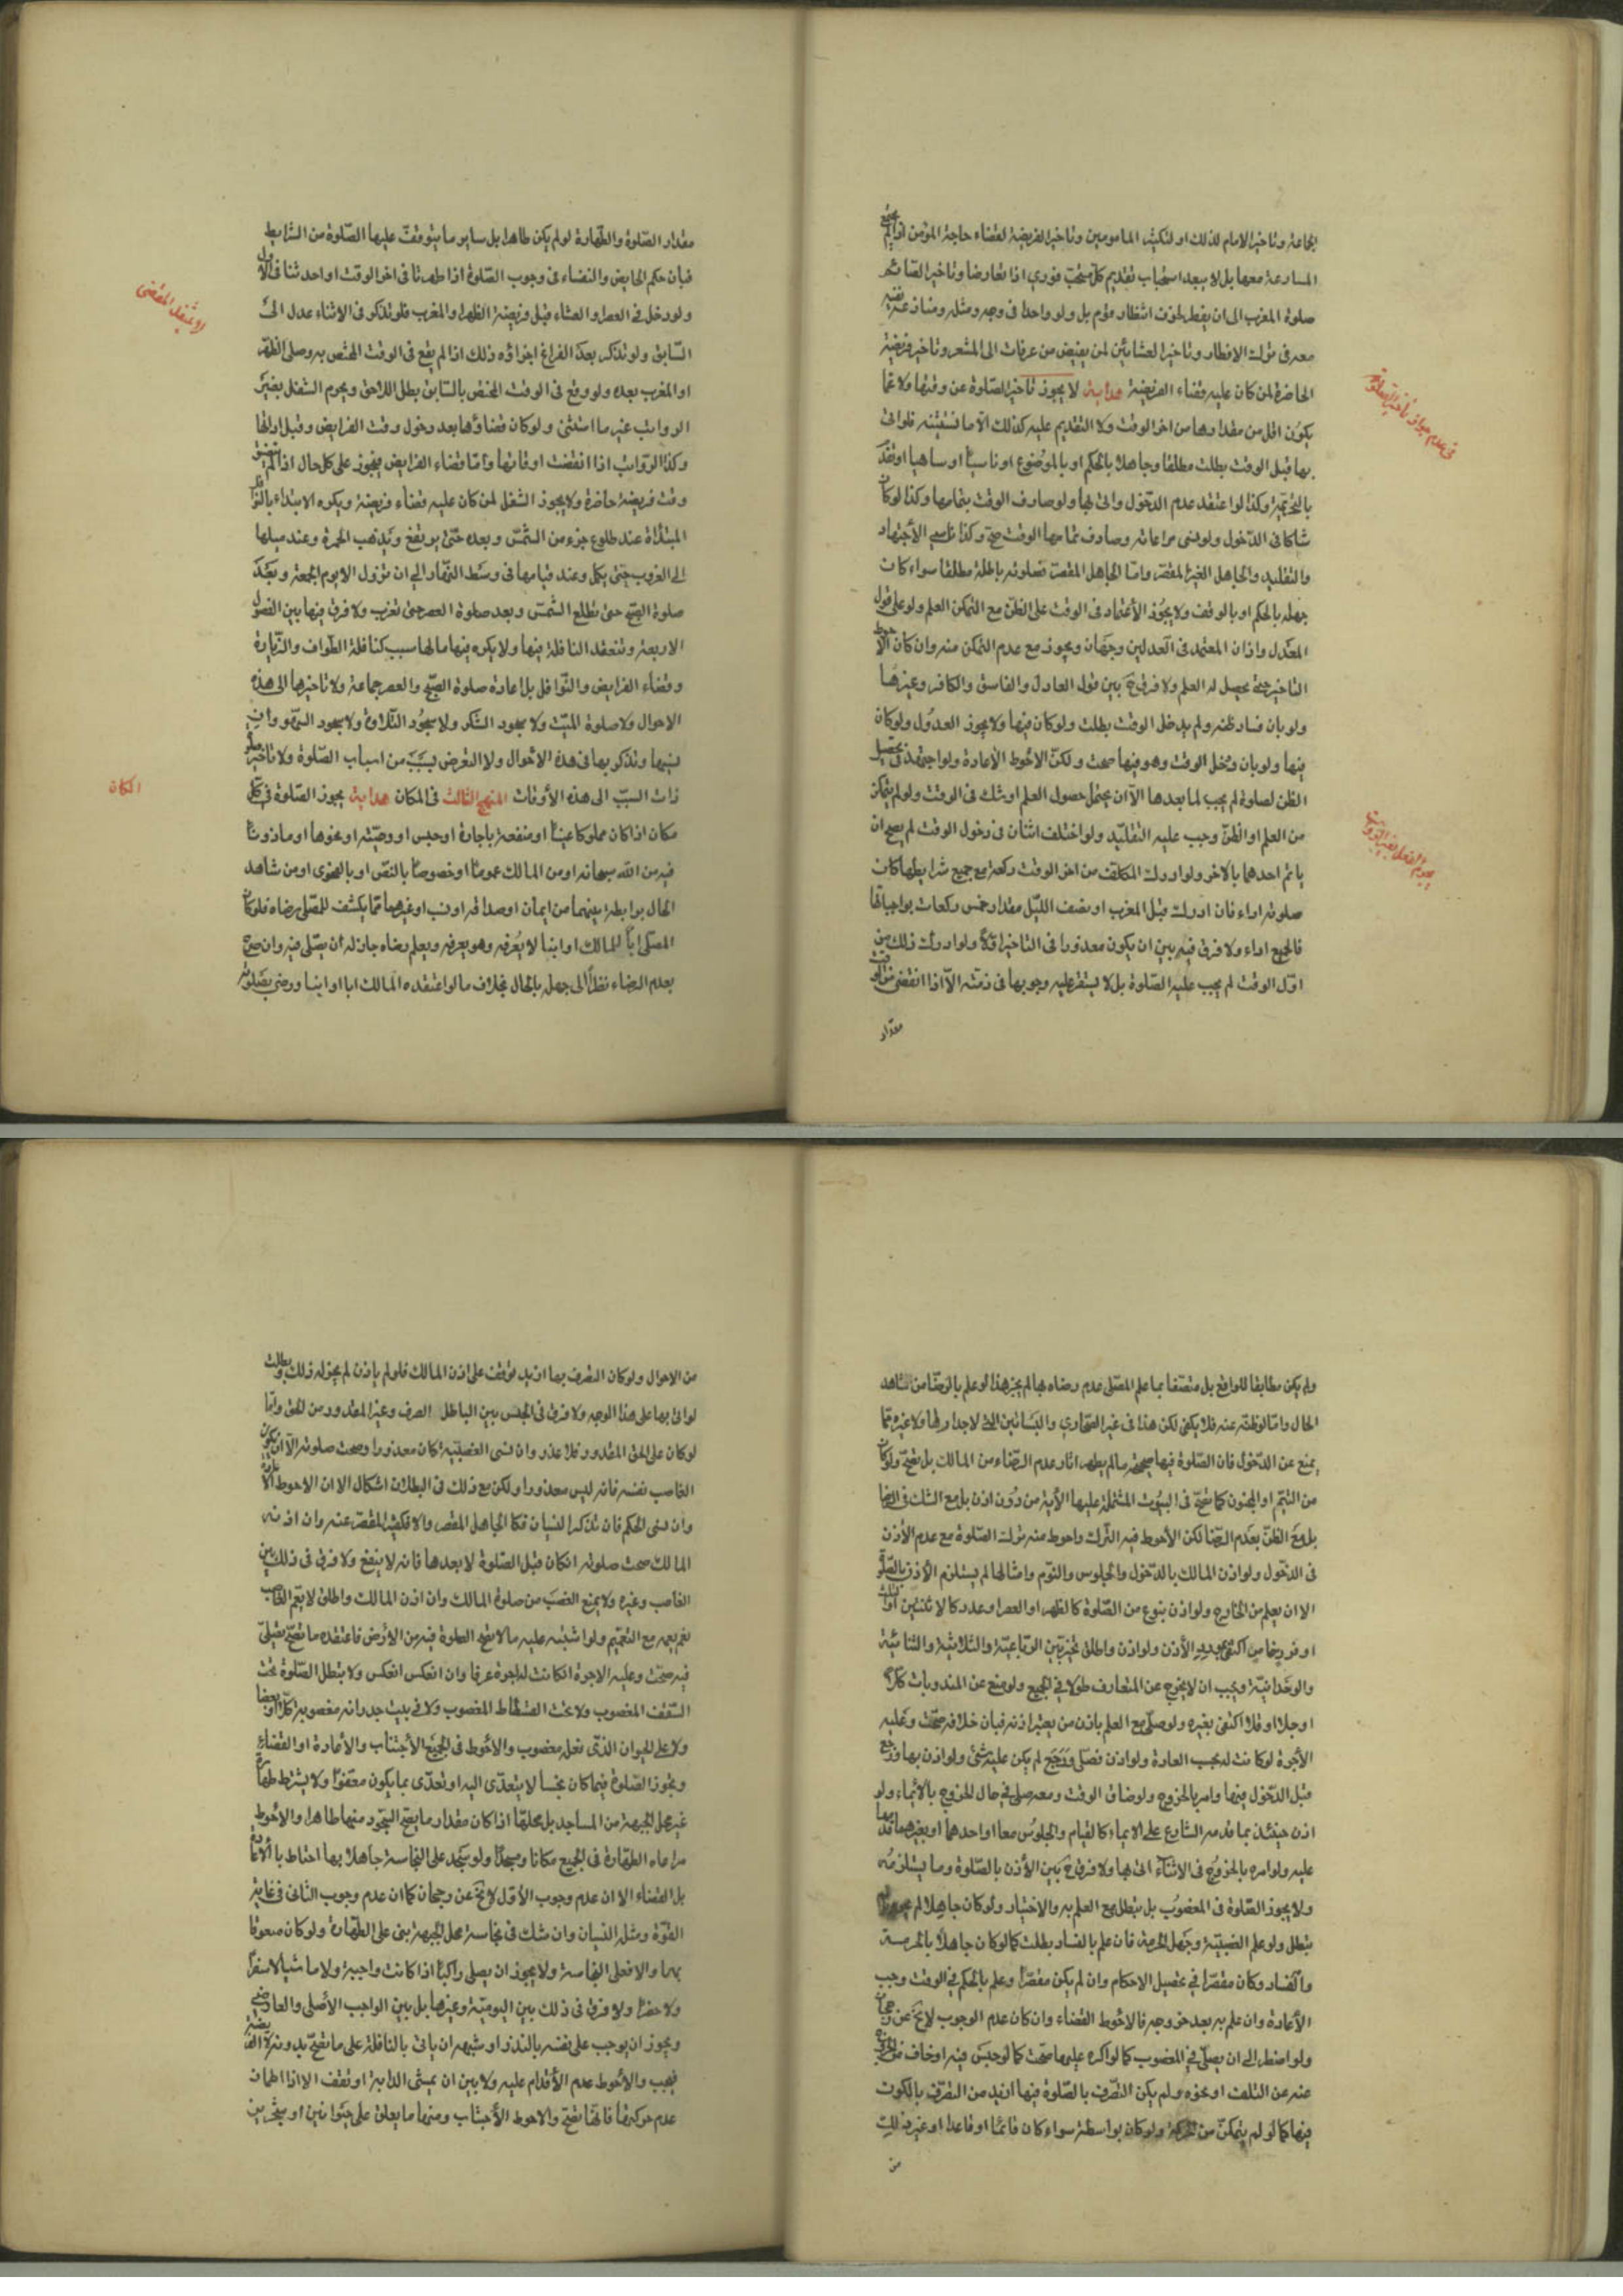 الجماعة وتاخير الامام لذلك او لتكثير المامومين وتاخير الفريضة لقضاء حاجة المؤمن اذا لم يمنع
المسارعة معها بل لا يبعد استحباب تقديم كل مستحب فوري اذا تعارضا وتاخير الصائم
صلوة المغرب الى ان يفطر لخوف انتظار قوم بل ولو واحدا في وجه ومثله ومنازعة نفسه
معه في ترك الافطار وتاخير العشائين لمن يفيض من عرفات الى المشعر وتاخير فريضة
الحاضرة لمن كان عليه قضاء الفريضة هداية لا يجوز تاخير الصلوة عن وقتها ولا عما
يكون اقل من مقدارها من اخر الوقت ولا التقديم عليه كذلك الا ما نستثنيه فلو اتى
بها قبل الوقت بطلت مطلقا وجاهلا بالحكم او بالموضوع او ناسيا او ساهيا او
وكذا لو اعتقد عدم الدخول واتى بها ولو صادف الوقت بتمامها وكذا لو كان
شاكا في الدخول ولو نسى مراعاته وصادف تمامها الوقت صح وكذا الاجتهاد
والتقليد والجاهل الغير المقصر واما الجاهل المقصر فصلوته باطلة مطلقا سواء كان
جهله بالحكم او بالوقت ولا يجوز الاعتماد في الوقت على الظن مع التمكن العلم ولو على قول
العدل واذان المعتمد في العدلين وجهان ويجوز مع عدم التمكن منه وان كان الاحوط
التاخير حتى يحصل له العلم ولا فرق ح بين قول العادل والفاسق والكافر وغيرها
ولو بان فساد ظنه ولم يدخل الوقت بطلت ولو كان فيها ولا يجوز العدول ولو كان
فيها ولو بان دخل الوقت وهو فيها صحت ولكن الاحوط الاعادة ولو اجتهد في تحصيل
الظن لصلوة لم يجب لما بعدها الا ان يحتمل حصول العلم او شك في الوقت ولو لم يتمكن
من العلم او الظن وجب عليه التقليد ولو اختلف اثنان في دخول الوقت لم يصح ان
ياتم احدهما بالاخر ولو ادرك المكلف من اخر الوقت ركعة مع جميع شرايطها كان
صلوته اداء فان ادرك قبل المغرب او نصف الليل مقدار خمس ركعات بواجباتها
فالجميع اداء ولا فرق فيه بين ان يكون معذورا في التاخير اولا ولو ادرك ذلك من
اول الوقت لم يجب عليه الصلوة بل لا يستقر عليه وجوبها في ذمته الا اذا انقضى من الوقت
مقدار
في عدم جواز تاخير الصلوة
مقدار الصلوة والطهارة لو لم يكن طاهرا بل ساير ما يتوقف عليها الصلوة من الشرايط
فبان حكم الحايض والنفساء في وجوب الصلوة اذا طهرتا في اخر الوقت او احدثتا في الاول
ولو دخل في العصر او العشاء قبل فريضة الظهر او المغرب فلو تذكر في الاثناء عدل الى
السابق ولو تذكر بعد الفراغ اجزاؤه ذلك اذا لم يقع في الوقت المختص به وصلى الظهر
او المغرب بعده ولو وقع في الوقت المختص بالسابق بطل اللاحق ويحرم التنفل بغير
الرواتب غير ما استثنى ولو كان قضاؤها بعد دخول وقت الفرايض وقبل اوائلها
وكذا الرواتب اذا انقضت اوقاتها واما قضاء الفرايض فيجوز على كل حال اذا لم يتضيق
وقت فريضة حاضرة ولا يجوز التنفل لمن كان عليه قضاء فريضة ويكره الابتداء بالنوافل
المبتدأة عند طلوع جزء من الشمس وبعده حتى يرتفع ويذهب الحمرة وعند ميلها
الى الغروب حتى يكمل وعند قيامها في وسط النهار الى ان تزول الا يوم الجمعة وبعد
صلوة الصبح حتى تطلع الشمس وبعد صلوة العصر حتى تغرب ولا فرق فيها بين الفصول
الاربعة وتنعقد النافلة فيها ولا يكره فيها ما لها سبب كنافلة الطواف والزيارة
وقضاء الفرايض والنوافل بل اعادة صلوة الصبح والعصر جماعة ولا تاخيرها الى هذه
الاحوال ولا صلوة الميت ولا سجود الشكر ولا سجود التلاوة ولا سجود السهو وان
نسيها وتذكر بها في هذه الاحوال ولا التعرض بسبب من اسباب الصلوة ولا تاخير صلوة
ذات السبب الى هذه الاوقات المنهج الثالث في المكان هداية يجوز الصلوة في كل
مكان اذا كان مملوكا عينا او منفعة باجارة او حبس او وصيته او نحوها او ماذونا
فيه من الله سبحانه او من المالك عموما او خصوصا بالنص او بالفحوى او من شاهد
الحال بوابطة بينهما من ايمان او صداقة او نسب او غيرهما مما يكشف للمصلى رضاه فلو كان
المصلى ابا للمالك او ابنا لا يعرفه وهو يعرفه ويعلم رضاه جاز له ان يصلى فيه وان صرح
بعدم الرضاء نظرا الى جهله بالحال بخلاف ما لو اعتقده المالك ابا او ابنا ورضى بصلوته
المكان
ولم يكن مطابقا للواقع بل متصفا بما علم المصلى عدم رضاه بها لم يجز هذا لو علم بالرضا من شاهد
الحال واما لو ظنه عنه فلا يكفى لكن هذا في غير الصحارى والبساتين التي لا جدار لها ولا غيره مما
يمنع عن الدخول فان الصلوة فيها صحيحة ما لم يظهر اثار عدم الرضاء من المالك بل تصح ولو كان
من اليتيم او المجنون كما تصح في البيوت المشتملة عليها الآية من دون اذن بل مع الشك في الرضا
بل مع الظن بعدم الرضا لكن الاحوط فيه الترك واحوط منه ترك الصلوة مع عدم الاذن
في الدخول ولو اذن المالك بالدخول والجلوس والنوم وامثالها لم يستلزم الاذن بالصلوة
الا ان يعلم من الخارج ولو اذن بنوع من الصلوة كالظهر او العصر او عدد كالاثنتين او ثلث
الاذن ولو اذن واطلق تخير بين الرباعية والثلاثية والثنائية
والوحدانية ويجب ان لا يخرج عن المتعارف طولا في الجميع ولو منع عن المندوبات كلا
او جلا او قلا اكتفى بغيره ولو صلى مع العلم باذن من يعتبر اذنه فبان خلافه صحت وعليه
الاجرة لو كانت له بحسب العادة ولو اذن فصلى ورجع لم يكن عليه شئ ولو اذن بها ورجع
قبل الدخول فيها وامر بالخروج ولو ضاق الوقت ومعه صلى في حال الخروج بالايماء ولو
اذن حينئذ بما قدمه الشارع على الايماء كالقيام والجلوس معا او احدهما او بغيرهما
عليه ولو امره بالخروج في الاثناء اتى بها ولا فرق ح بين الاذن بالصلوة وما يستلزمه
ولا يجوز الصلوة في المغصوب بل تبطل مع العلم به والاختيار ولو كان جاهلا لم
تبطل ولو علم الغصبية وجهل الحرمة فان علم بالفساد بطلت كما لو كان جاهلا بالحرمة
والفساد وكان مقصرا في تحصيل الاحكام وان لم يكن مقصرا وعلم بالحكم في الوقت وجب
الاعادة وان علم به بعد خروجه فالاحوط القضاء وان كان عدم الوجوب لا يخ عن رجحان
ولو اضطر الى ان يصلى في المغصوب كما لو اكره عليها صحت كما لو حبس فيه او خاف من الخروج
عنه عن التلف او نحوه ولم يكن التصرف بالصلوة فيها ازيد من التصرف بالكون
فيها كما لو لم يتمكن من الحركة ولو كان بواسطة سواء كان قائما او قاعدا او غير ذلك
من
من الاحوال ولو كان التصرف بها ازيد توقف على اذن المالك فلو لم ياذن لم يجز له ذلك وبطلت
لو اتى بها على هذا الوجه ولا فرق في الحبس بين الباطل الصرف وغير المقدور من الحق واما
لو كان على الحق المقدور فلا عذر وان نسى الغصبية كان معذورا وصحت صلوته الا ان يكون
الغاصب نفسه فانه ليس معذورا ولكن مع ذلك في البطلان اشكال الا ان الاحوط الاعادة
وان نسى الحكم فان تذكر النسيان فكالجاهل المقصر والا فكغير المقصر عنه وان اذنه
المالك صحت صلوته ان كان قبل الصلوة لا بعدها فانه لا ينفع ولا فرق في ذلك بين
الغاصب وغيره ولا يمنع الغصب من صلوة المالك وان اذن المالك واطلق لا يعم الغاصب
نعم يعمه مع التعميم ولو اشتبه عليه ما لا تصح الصلوة فيه من الارض فاعتقده ما تصح فصلى
فيه صحت وعليه الاجرة ان كانت له اجرة عرفا وان انعكس انعكس ولا تبطل الصلوة تحت
السقف المغصوب ولا تحت الفسطاط المغصوب ولا في بيت جدرانه مغصوبة كلا او بعضا
ولا على الحيوان الذي نعله مغصوب والاحوط في الجميع الاجتناب والاعادة او القضاء
وتجوز الصلوة فيما كان نجسا لا يتعدى اليه او تعدى بما يكون معفوا ولا يشترط طهارة
غير محل الجبهة من المساجد بل محلها اذا كان مقدار ما يصح السجود منها طاهرا والاحوط
مراعاة الطهارة في الجميع مكانا ومسجدا ولو سجد على النجاسة جاهلا بها احتاط بالاعادة
بل القضاء الا ان عدم وجوب الاول لا يخ عن رجحان كما ان عدم وجوب الثاني في غاية
القوة ومثله النسيان وان شك في نجاسة محل الجبهة بنى على الطهارة ولو كان مسبوقا
بها والا فعلى النجاسة ولا يجوز ان يصلى راكبا اذا كانت واجبة ولا ماشيا لا سفرا
ولا حضرا ولا فرق في ذلك بين اليومية وغيرها بل بين الواجب الاصلى والعارضى
ويجوز ان يوجب على نفسه بالنذر او شبهه ان ياتى بالنافلة على ما تصح بدونه لا الفريضة
فيجب والاحوط عدم الاقدام عليه ولا بين ان يمشى الدابة او تقف الا اذا اطمان
عدم حركتها فانها تصح والاحوط الاجتناب ومنها ما يعلق على حيوانين او شجرتين